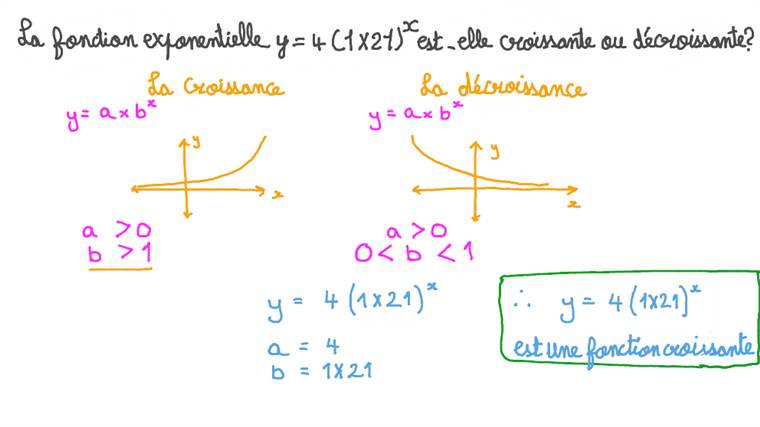 La fonction exponentielle y = 4 (1×21)ˣ est-elle croissante ou décroissante?
La croissance
La décroissance
y = a × bˣ
y = a × bˣ
y
x
y
x
a > 0
b > 1
a > 0
0 < b < 1
y = 4 (1×21)ˣ
a = 4
b = 1×21
∴ y = 4 (1×21)ˣ
est une fonction croissante